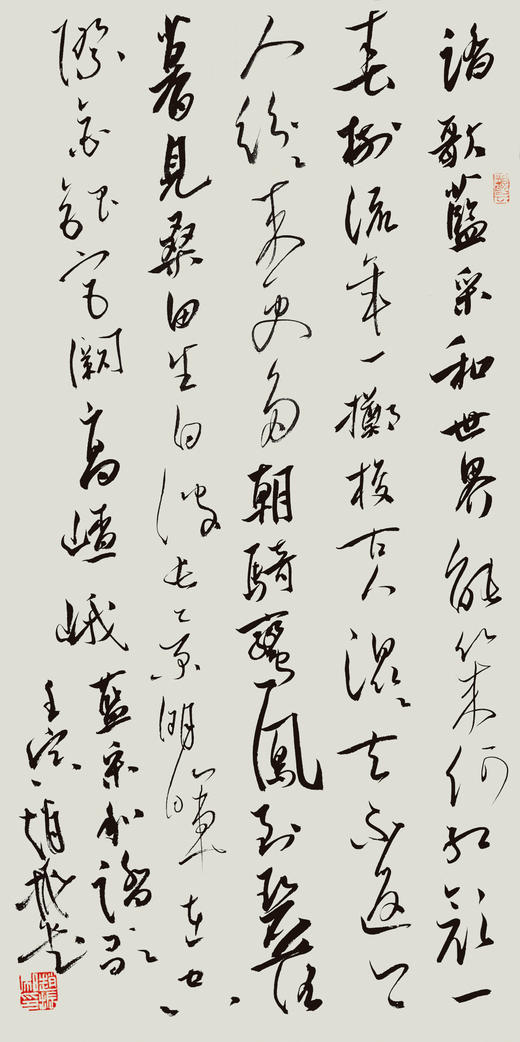 踏歌藍采和世界能幾何紅顏一
春樹流年一擲梭古人混混去不返今
人紛紛來更多朝騎鸞鳳到碧落
暮見桑田生白波長景明暉在空
際金銀宮闕高嵯峨藍采和踏歌
壬寅趙書